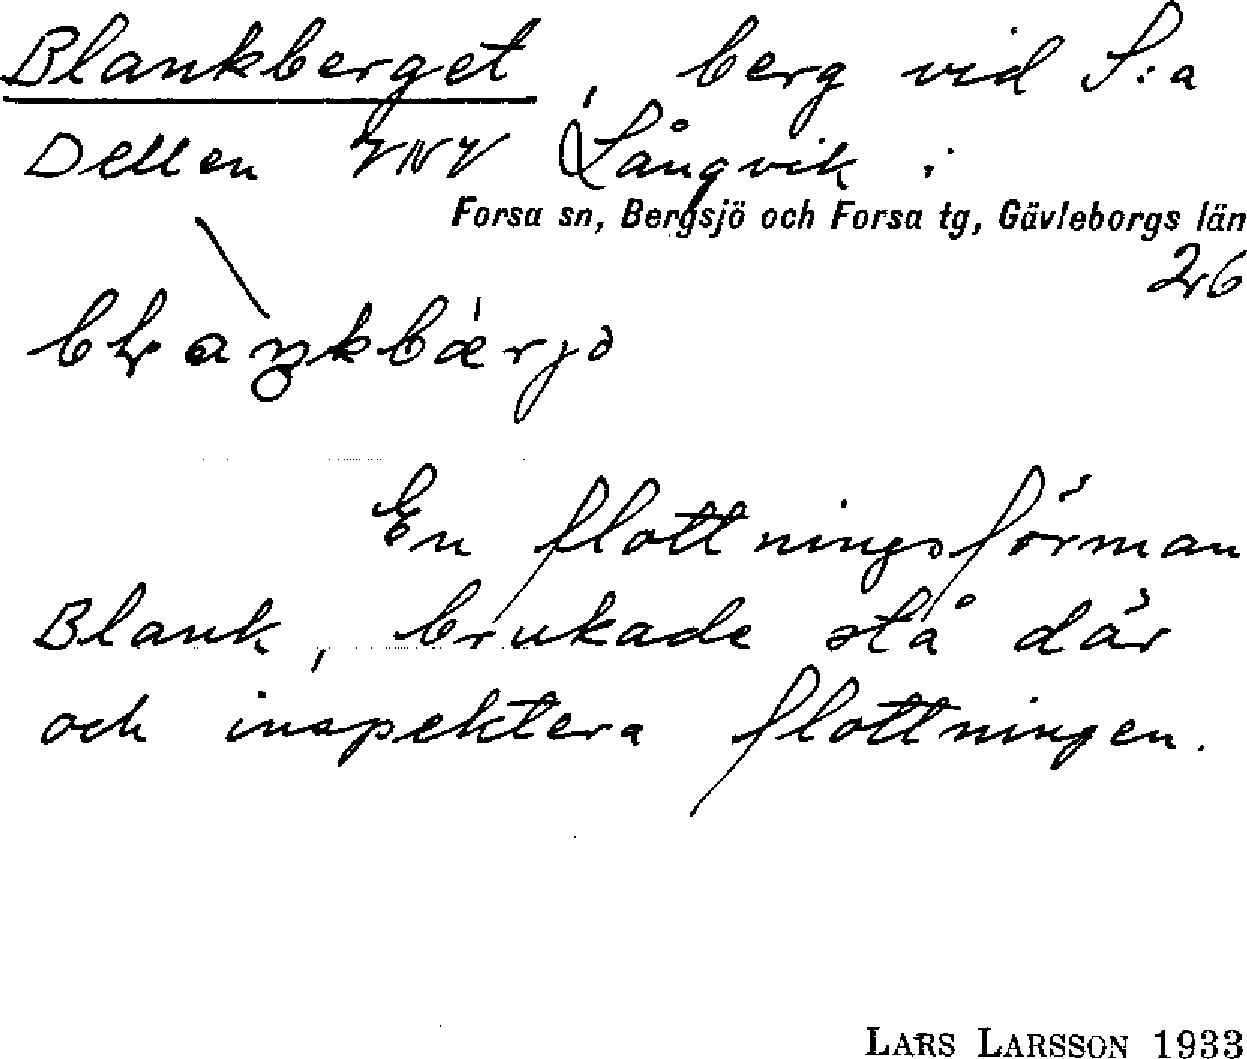 Blankberget, berg vid S:a
Dellen VNV Långvik i
Forsa sn, Bergsjö och Forsa tg, Gävleborgs län
26
En flottningsförman
Blank, brukade stå där
och inspektera flottningen.
LARS LARSSON 1933